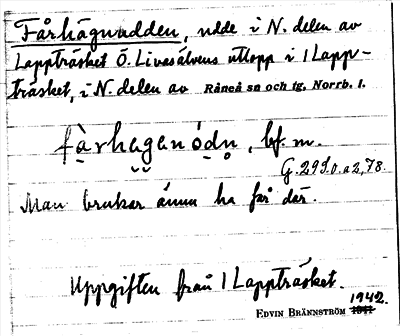 Fårhägnudden, udde i N. delen av
Lappträsket Ö. Livasälvens utlopp i 1 Lapp-
träsket, i N. delen av Råneå sn och tg, Norrb. l.
fàrhaganódn, bf. m.
G. 293.o.a2,78.
Man brukar ännu ha får där.
Uppgiften från 1 Lappträsket.
1942.
EDVIN BRÄNNSTRÖM 1941